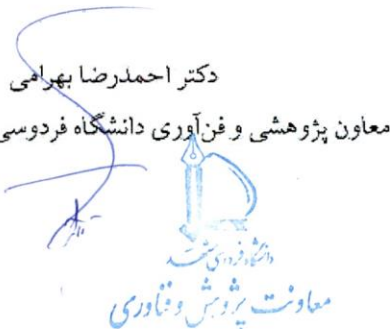 دکتر احمدرضا بهرامی
معاون پژوهشی و فن‌آوری دانشگاه فردوسی
دانشگاه فردوسی مشهد
معاونت پژوهش و فناوری